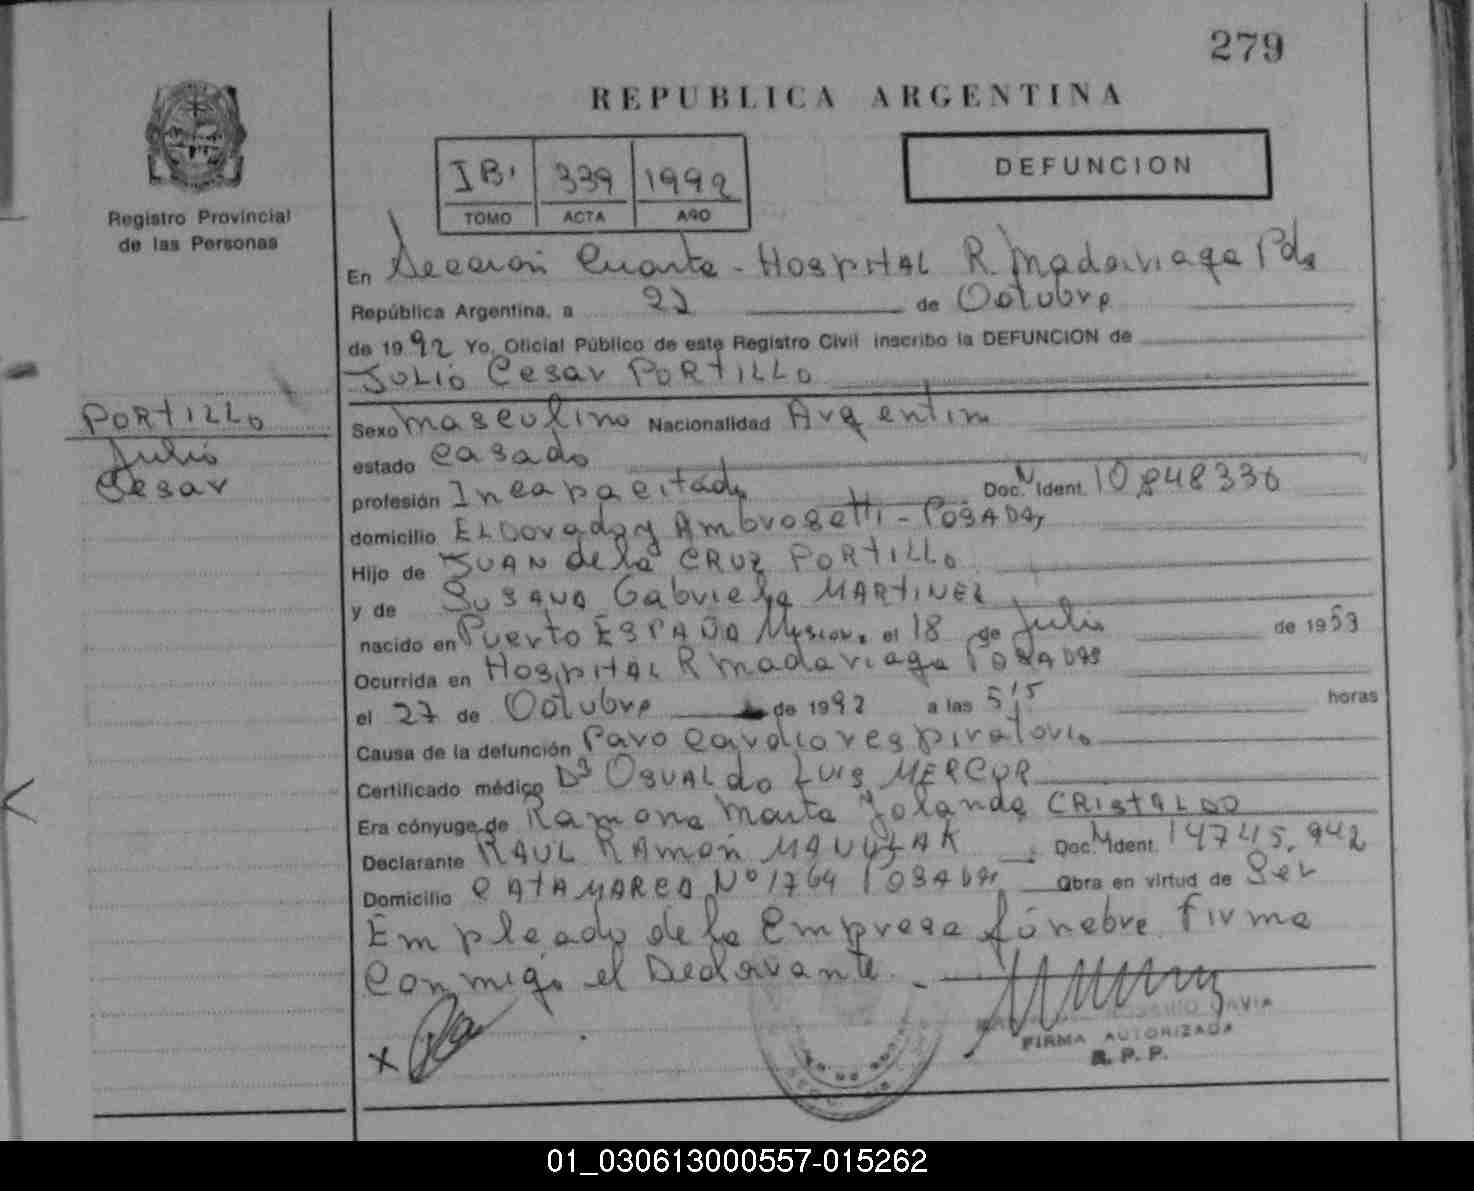 279
REPUBLICA ARGENTINA
IB. 339 1992
TOMO ACTA AÑO
DEFUNCION
Registro Provincial
de las Personas
En Sección Cuarta - Hospital R. Madariaga Pds
República Argentina, a 27 de Octubre
de 1992 Yo, Oficial Público de este Registro Civil inscribo la DEFUNCION de
JULIO Cesar PORTILLO
PORTILLO
Julio
Cesar
Sexo masculino Nacionalidad Argentin
estado casado
profesión Incapacitado Doc. N Ident. 10.848336
domicilio ELDorado y Ambrosetti - POSADAS
Hijo de JUAN de la CRUZ PORTILLO
y de SUSANA Gabriela MARTINEZ
nacido en Puerto ESPAÑA Mision. el 18 de Julio de 1953
Ocurrida en Hospital R Madariaga POSADAS
el 27 de Octubre de 1992 a las 5,15 horas
Causa de la defunción Paro Cardiorespiratorio
Certificado médico Dr OSVALdo LUIS MERCOR
Era cónyuge de Ramona Marta Yolanda CRISTALDO
Declarante RAUL RAMON Doc. N Ident. 14745.942
Domicilio CATAMARCA Nº 1764 POSADAS Obra en virtud de Ser
Empleado de la Empresa fúnebre. firma
Conmigo el Declarante. -
x
FIRMA AUTORIZADA
R. P. P.
01_030613000557-015262